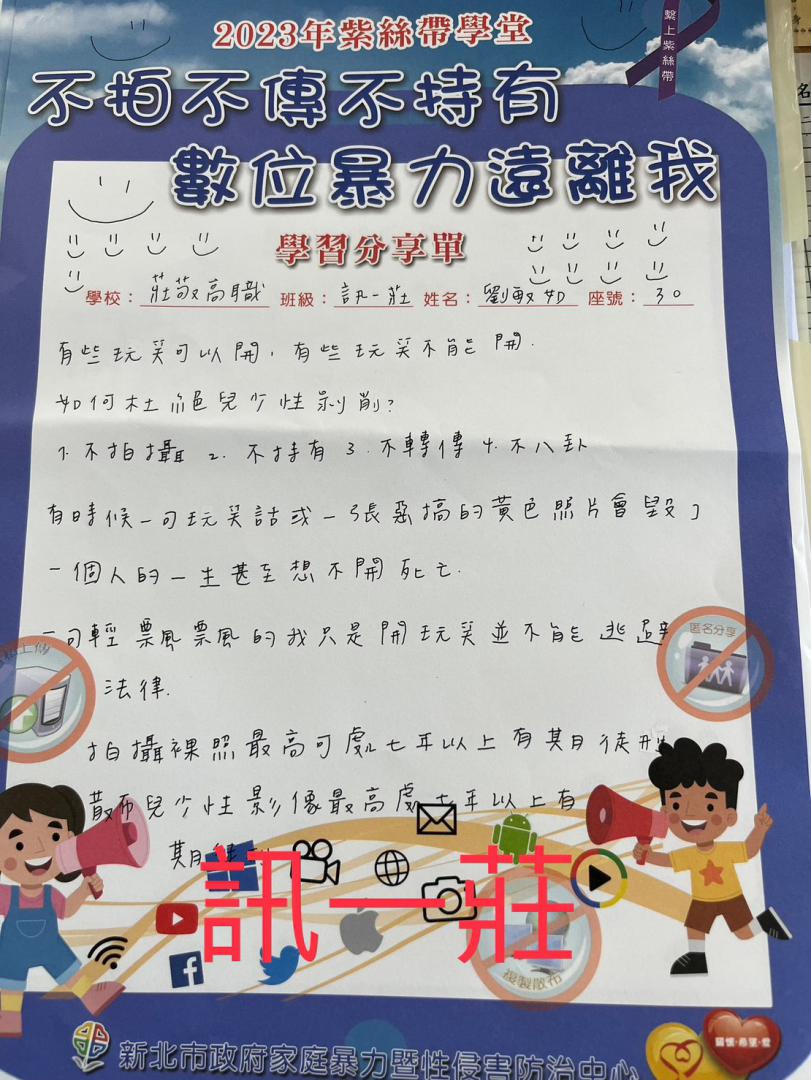 2023年紫絲帶學堂
繫上紫絲帶
不拍不傳不持有
數位暴力遠離我
學習分享單
學校：莊敬高職 班級：訊一莊 姓名：劉敏如 座號：30
有些玩笑可以開，有些玩笑不能開.
如何杜絕兒少性剝削?
1. 不拍攝 2. 不持有 3. 不轉傳 4. 不八卦
有時候一句玩笑話或一張惡搞的黃色照片會毀了
一個人的一生甚至想不開死亡.
一句輕飄飄的我只是開玩笑並不能逃避
法律.
拍攝裸照最高可處七年以上有期徒刑
散布兒少性影像最高處七年以上有
期徒刑
匿名分享
上傳
訊一莊
複製散布
新北市政府家庭暴力暨性侵害防治中心
關懷·希望·愛